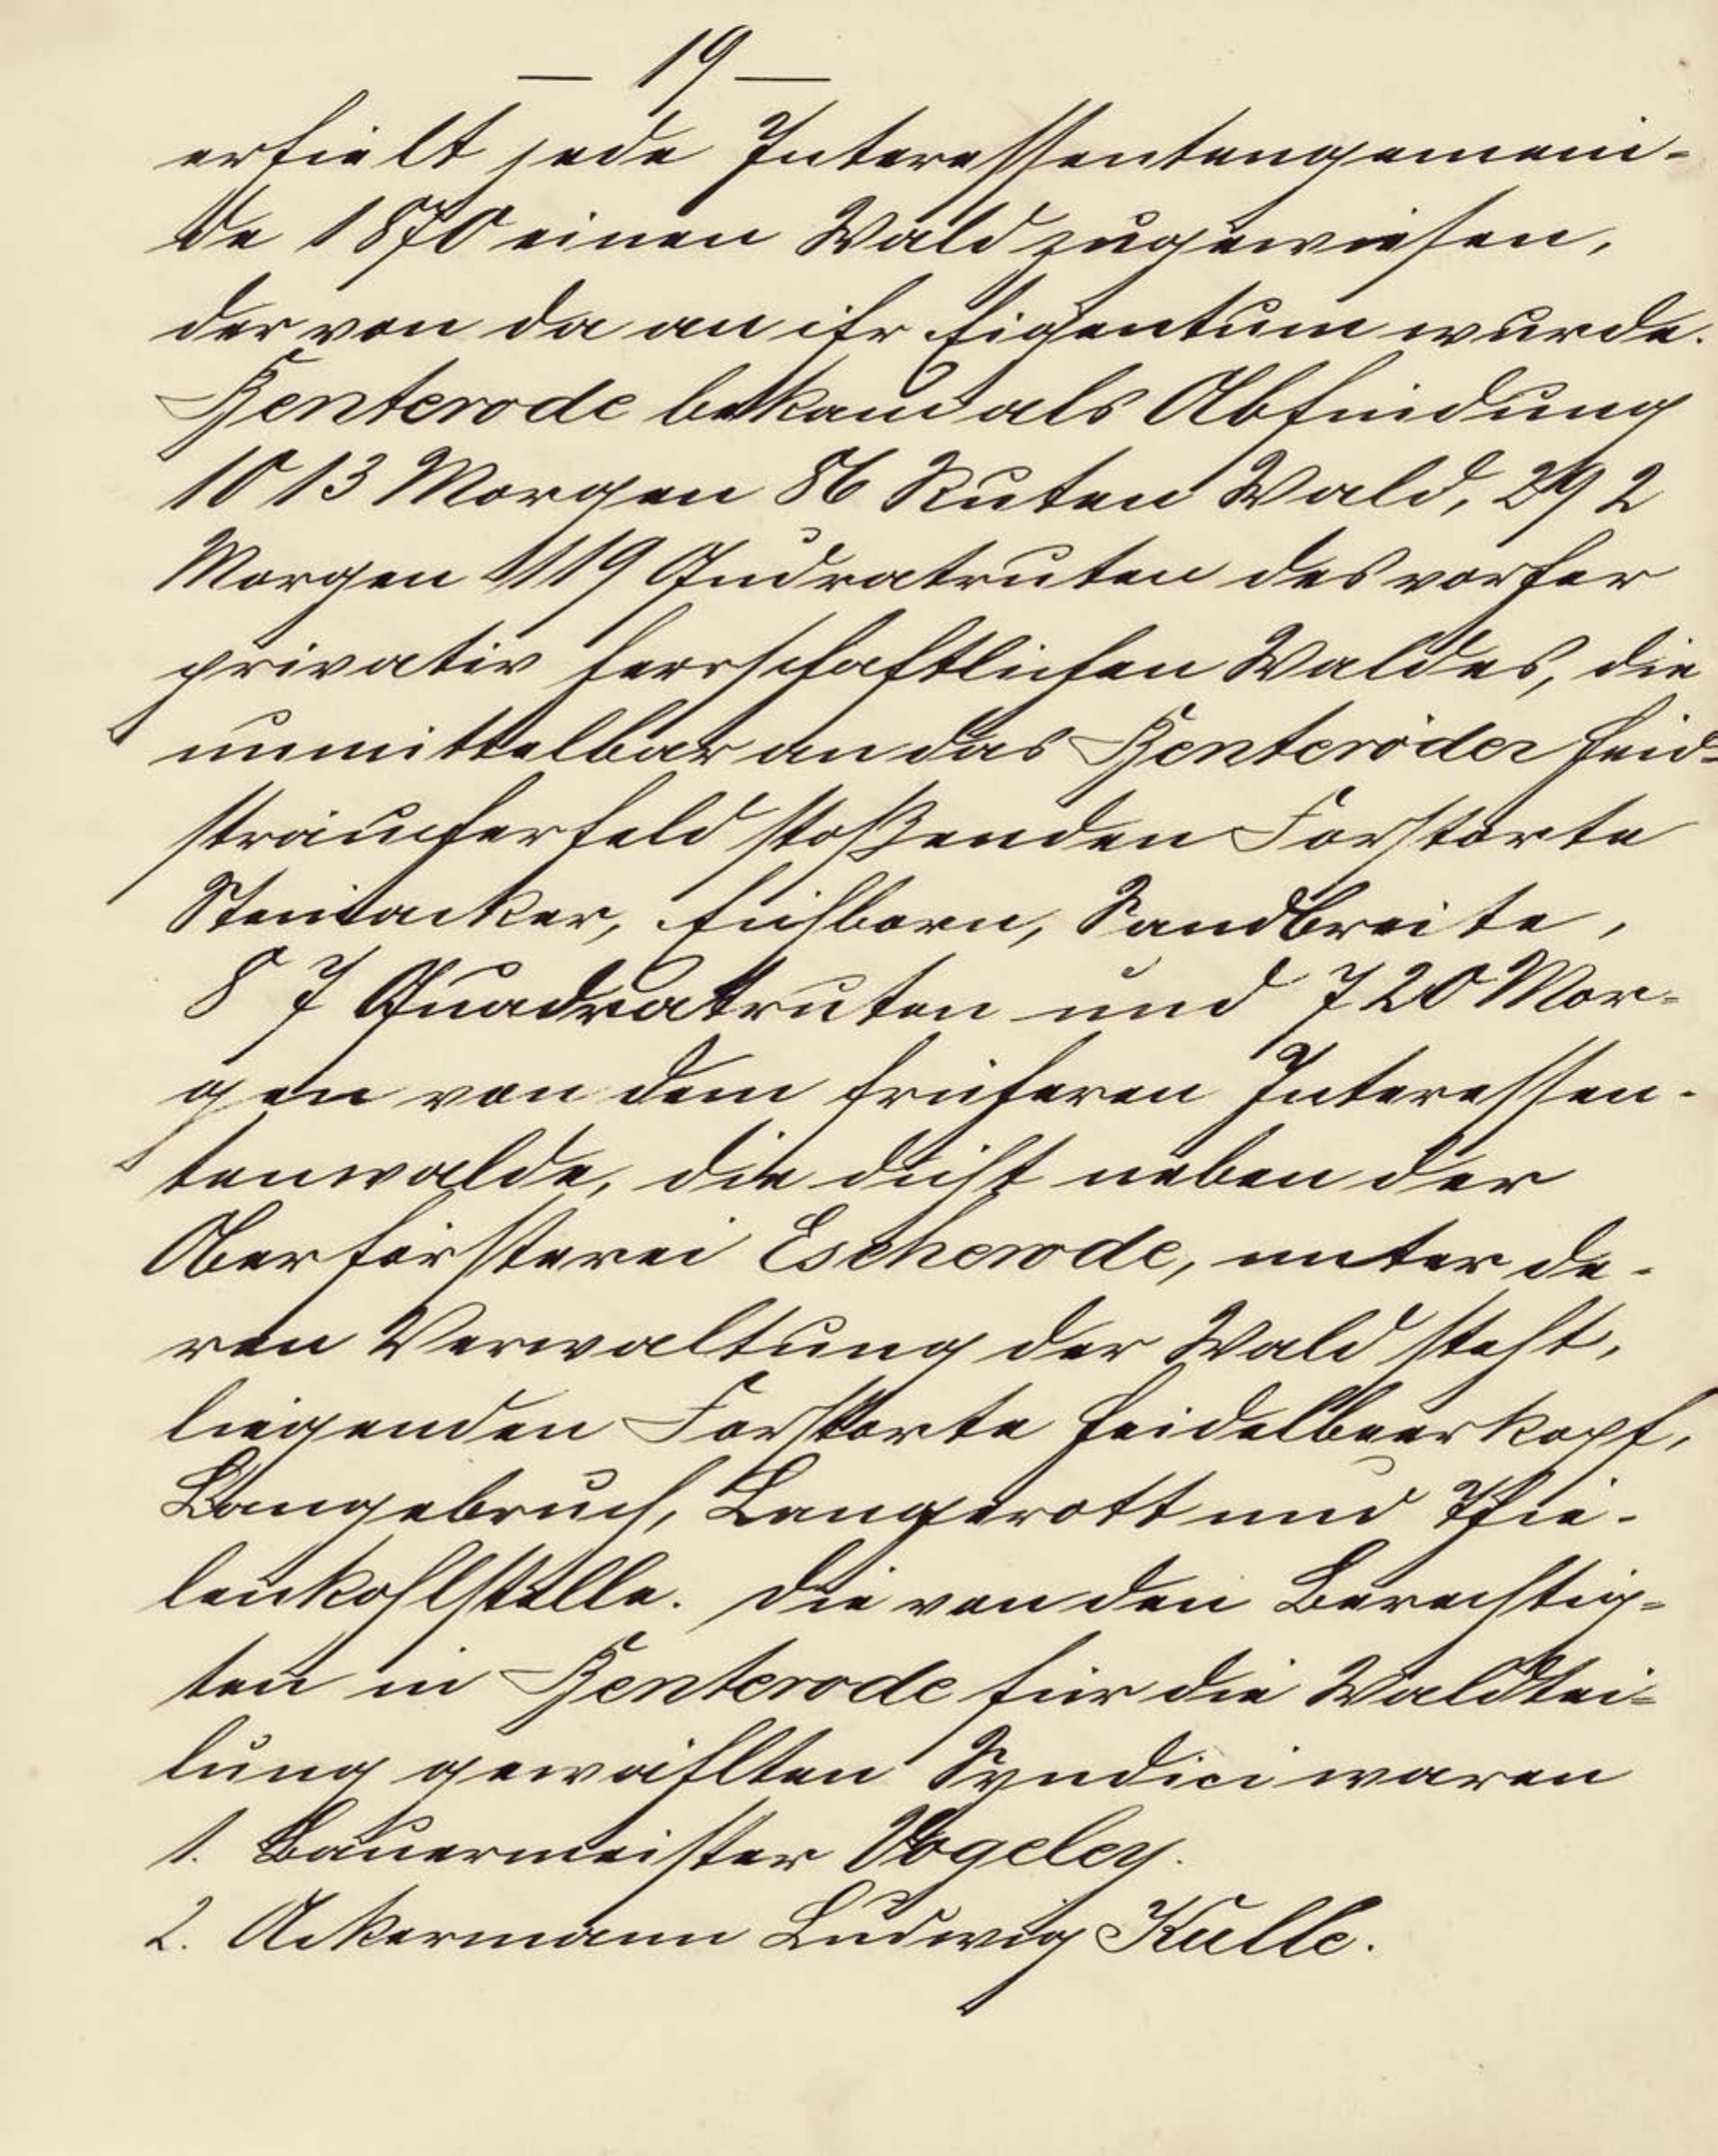 — 19 —
erhielt jede Interessentengemein-
de 1870 einen Wald zugewiesen,
der von da an ihr Eigentum wurde.
Benterode bekam als Abfindung
1013 Morgen 86 Ruten Wald, 292
Morgen 119 Qudratruten des vorher
privativ herrschaftlichen Waldes, die
unmittelbar an das Benteröder Heid-
sträucherfeld stoßenden Forstorte
Steinacker, Eichborn, Sandbreite,
87 Quadratruten und 720 Mor-
gen von dem früheren Interessen-
tenwalde, die dicht neben der
Oberförsterei Escherode, unter de-
ren Verwaltung der Wald steht,
liegenden Forstorte Heidelbeerkopf,
Langebruch, Langerott und Thie-
lenkohlstelle. Die von den Berechtig-
ten in Benterode für die Waldtei-
lung gewählten Syndici waren
1. Bauermeister Vogeley.
2. Ackermann Ludwig Kulle.